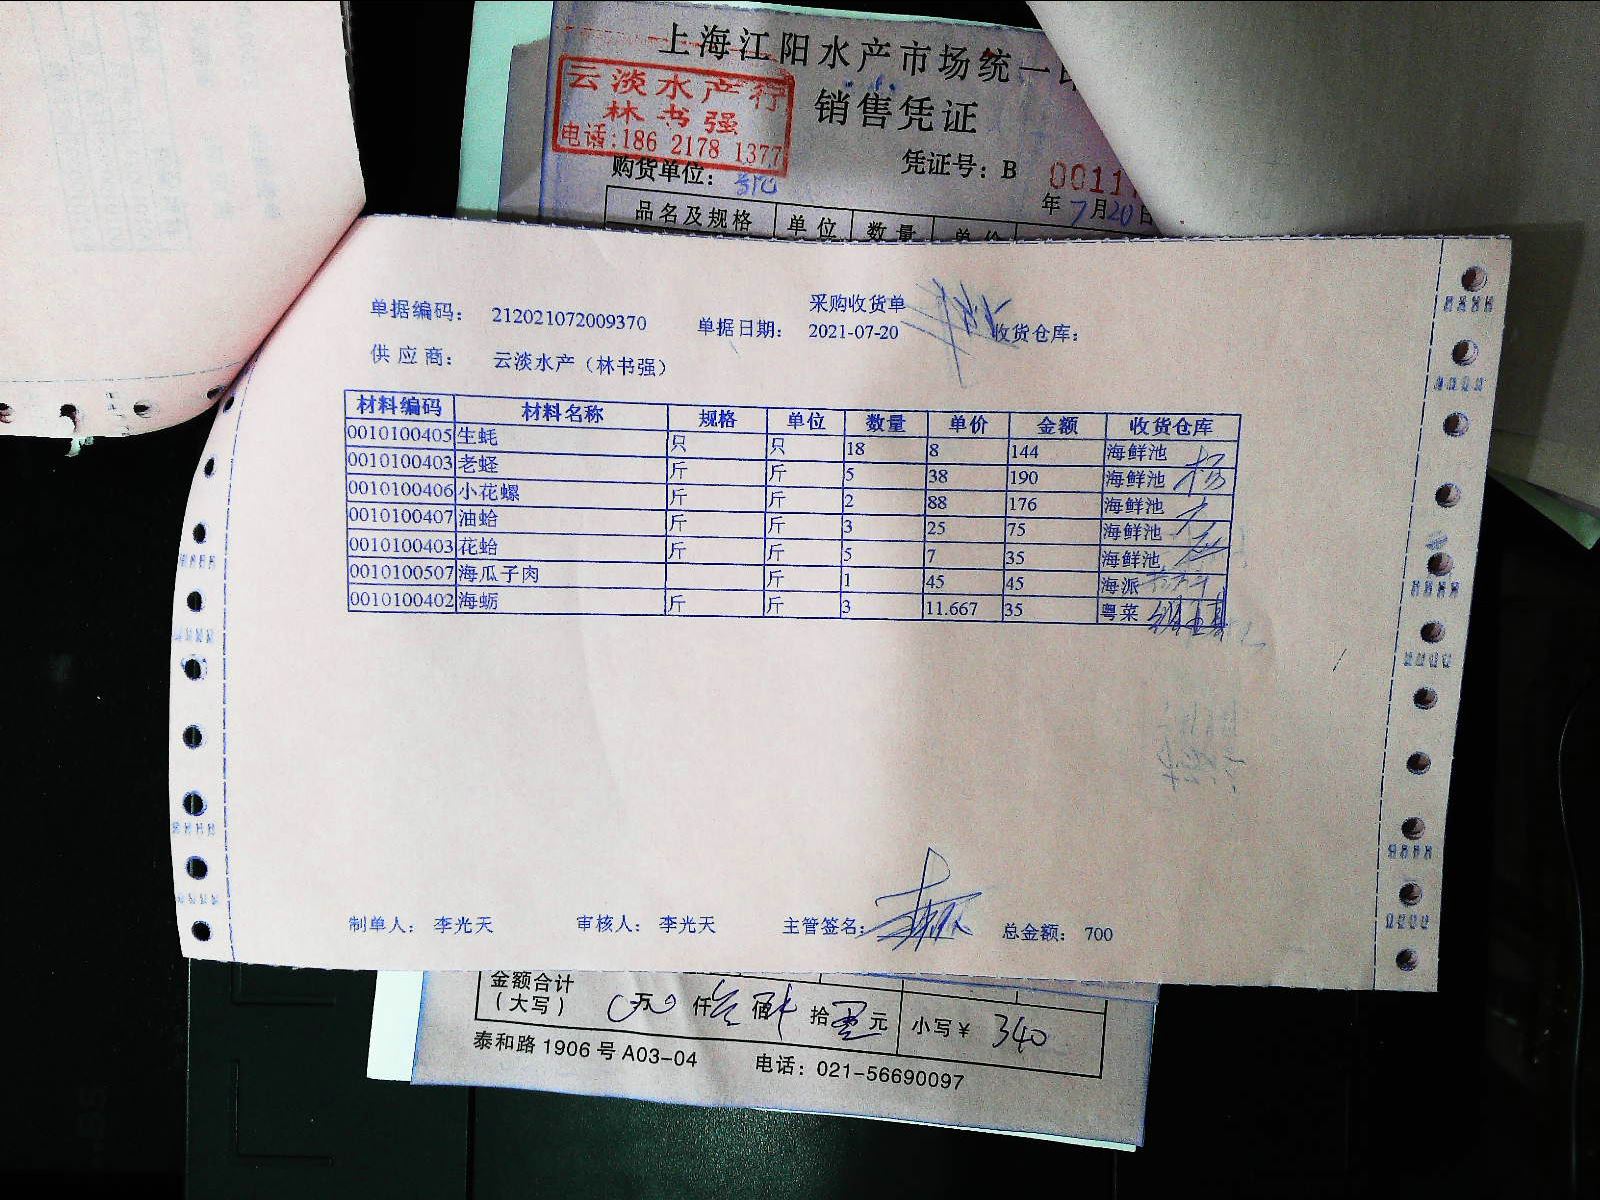 上海江阳水产市场统一
云淡水产行
林书强
电话:186 2178 1377
销售凭证
购货单位:
凭证号: B 0011
年 7月20日
品名及规格 单位 数量 单价
采购收货单
单据编码: 212021072009370 单据日期: 2021-07-20 收货仓库:
供应商: 云淡水产（林书强）
材料编码 材料名称 规格 单位 数量 单价 金额 收货仓库
0010100405 生蚝 只 只 18 8 144 海鲜池
0010100403 老蛏 斤 斤 5 38 190 海鲜池
0010100406 小花螺 斤 斤 2 88 176 海鲜池
0010100407 油蛤 斤 斤 3 25 75 海鲜池
0010100403 花蛤 斤 斤 5 7 35 海鲜池
0010100507 海瓜子肉 斤 1 45 45 海派
0010100402 海蛎 斤 斤 3 11.667 35 粤菜
制单人: 李光天 审核人: 李光天 主管签名: 总金额: 700
金额合计
（大写） 万 仟 佰 拾 元 小写¥ 340
泰和路1906号A03-04 电话: 021-56690097